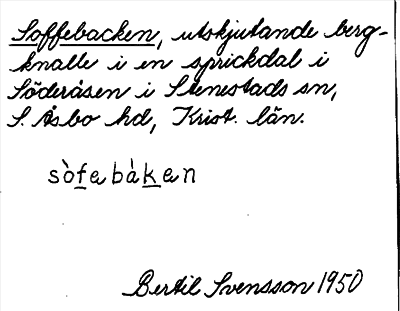 Soffebacken, utskjutande berg-
knalle i en sprickdal i
Söderåsen i Stenestads sn,
S. Åsbo hd, Krist. län.
sòfebàken
Bertil Svensson 1950